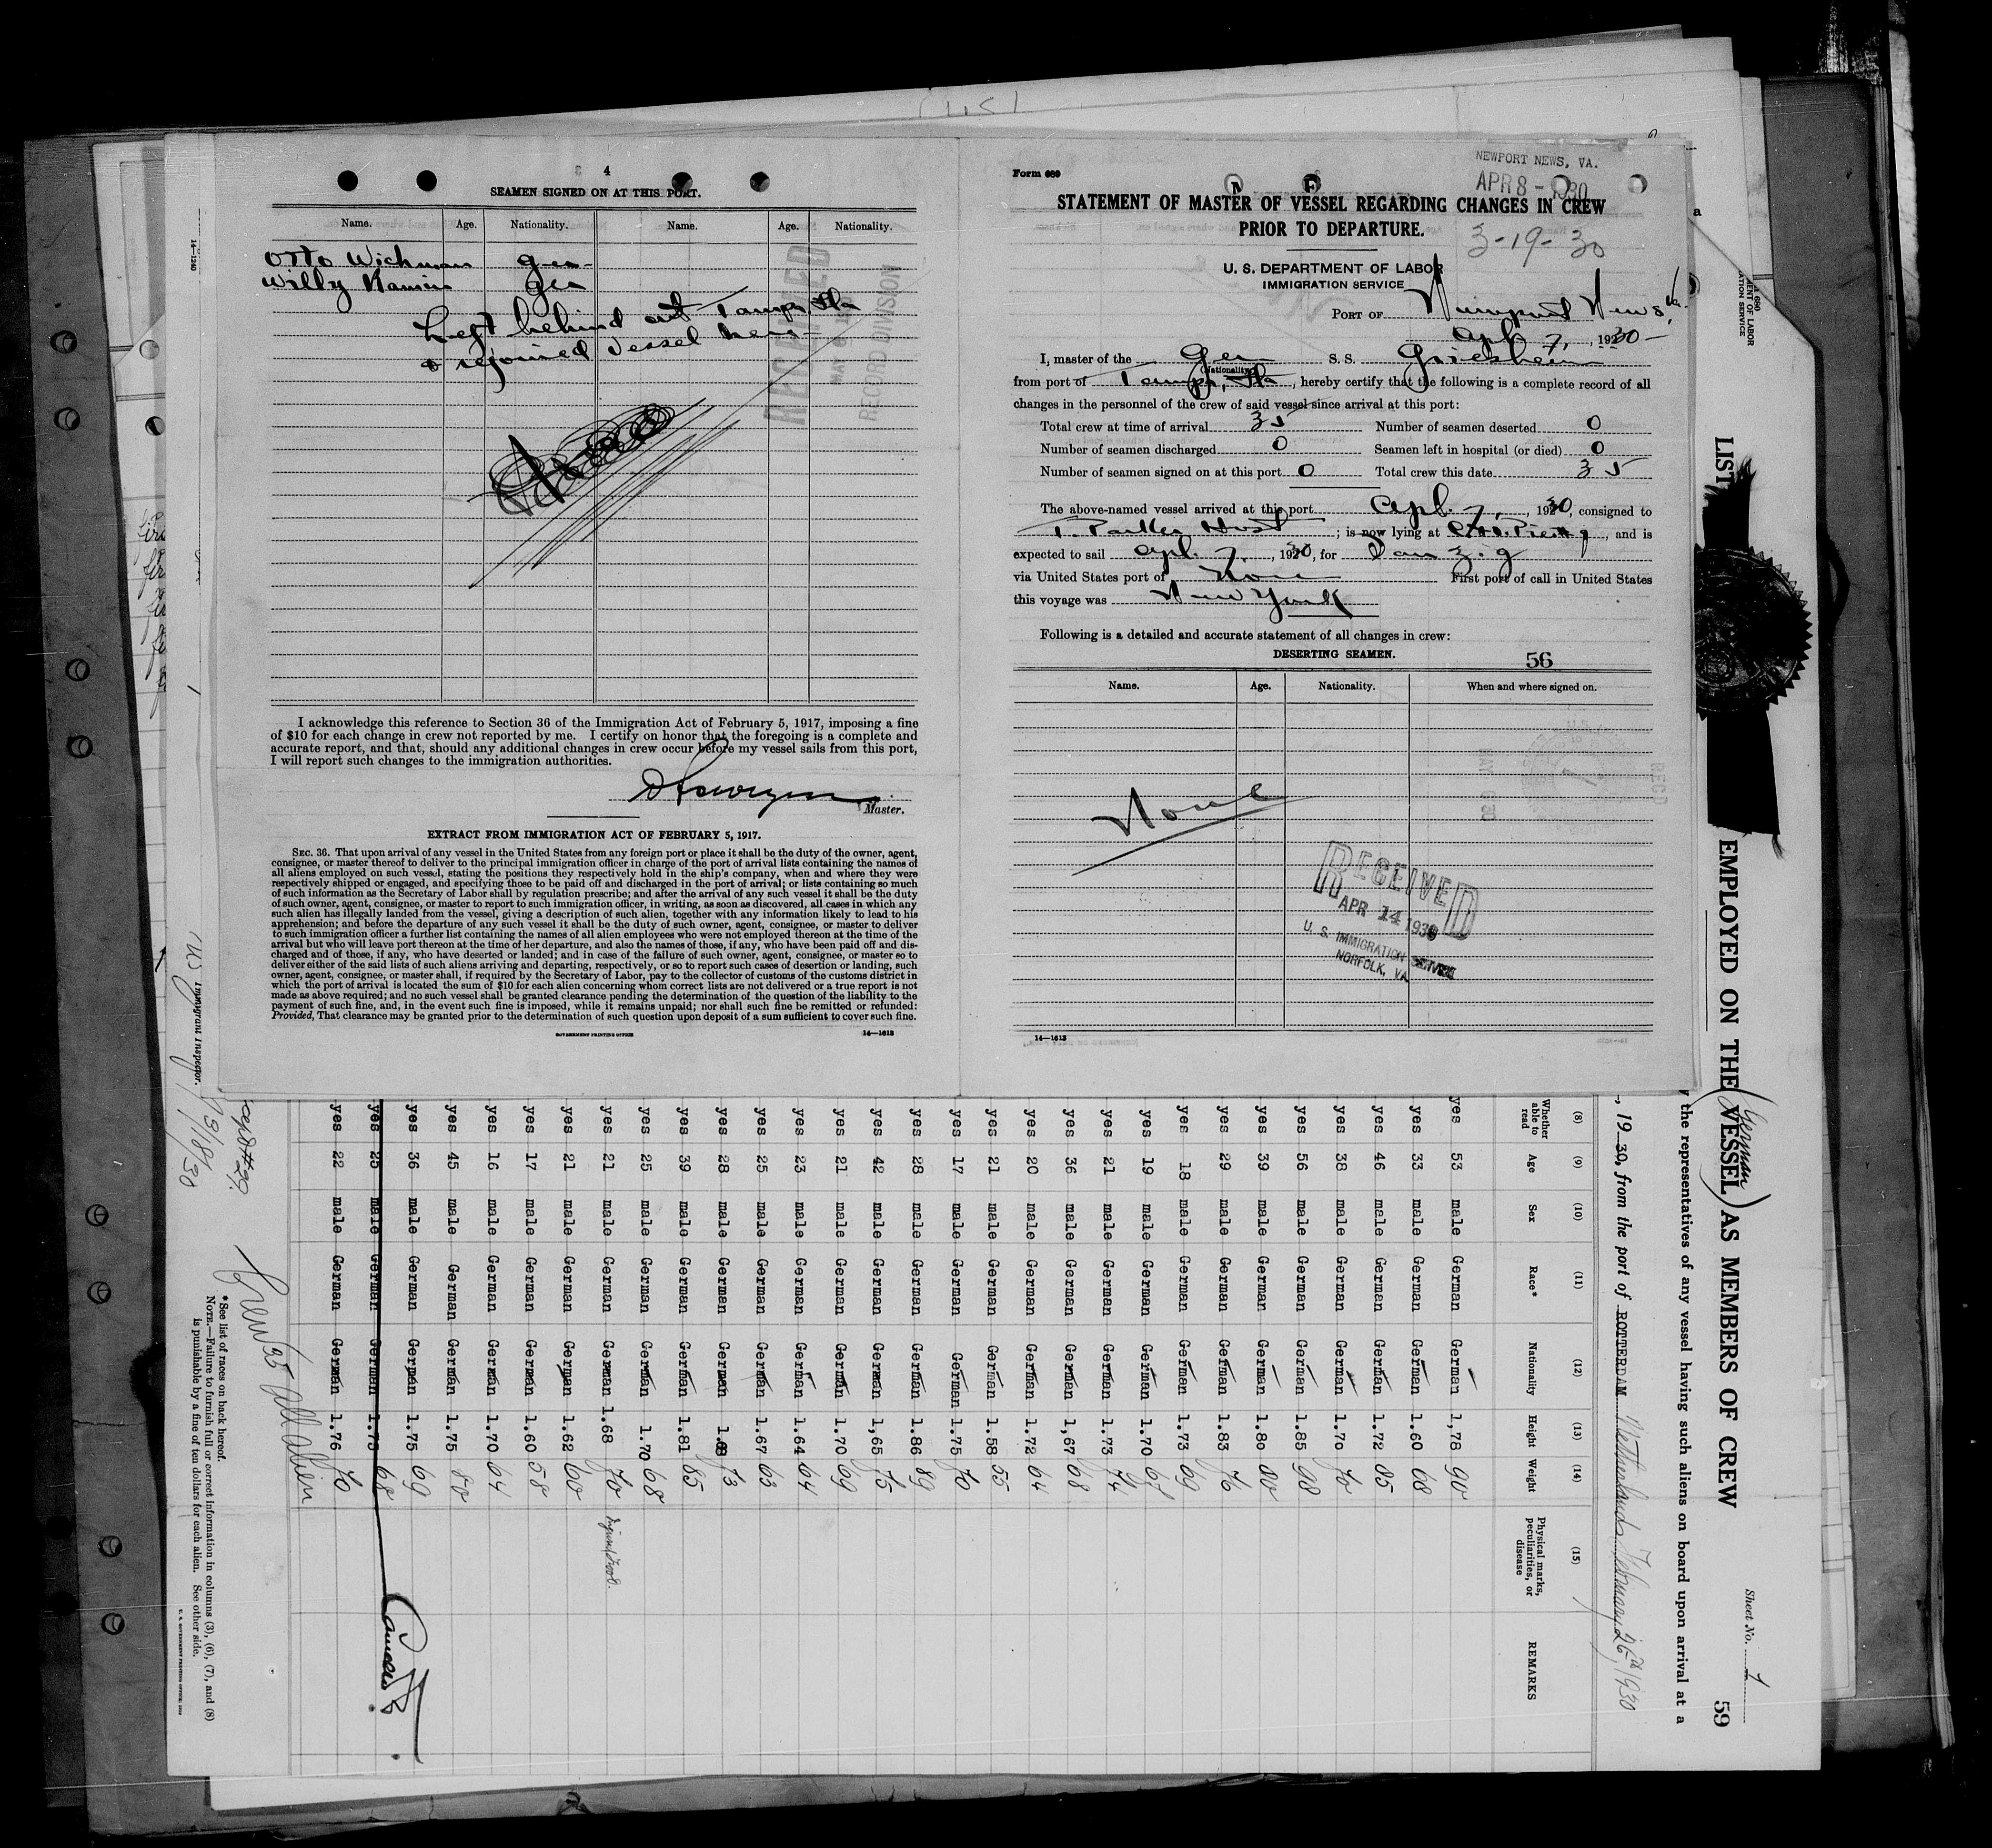 4
SEAMEN SIGNED ON AT THIS PORT.
Name. Age. Nationality. Name. Age. Nationality.
Otto Wichman Ger
Willy Ger
Left behind at Tampa, Fla
& rejoined vessel here
RECORD DIVISION
I acknowledge this reference to Section 36 of the Immigration Act of February 5, 1917, imposing a fine
of $10 for each change in crew not reported by me. I certify on honor that the foregoing is a complete and
accurate report, and that, should any additional changes in crew occur before my vessel sails from this port,
I will report such changes to the immigration authorities.
Master.
EXTRACT FROM IMMIGRATION ACT OF FEBRUARY 5, 1917.
SEC. 36. That upon arrival of any vessel in the United States from any foreign port or place it shall be the duty of the owner, agent,
consignee, or master thereof to deliver to the principal immigration officer in charge of the port of arrival lists containing the names of
all aliens employed on such vessel, stating the positions they respectively hold in the ship's company, when and where they were
respectively shipped or engaged, and specifying those to be paid off and discharged in the port of arrival; or lists containing so much
of such information as the Secretary of Labor shall by regulation prescribe; and after the arrival of any such vessel it shall be the duty
of such owner, agent, consignee, or master to report to such immigration officer, in writing, as soon as discovered, all cases in which any
such alien has illegally landed from the vessel, giving a description of such alien, together with any information likely to lead to his
apprehension; and before the departure of any such vessel it shall be the duty of such owner, agent, consignee, or master to deliver
to such immigration officer a further list containing the names of all alien employees who were not employed thereon at the time of the
arrival but who will leave port thereon at the time of her departure, and also the names of those, if any, who have been paid off and dis-
charged and of those, if any, who have deserted or landed; and in case of the failure of such owner, agent, consignee, or master so to
deliver either of the said lists of such aliens arriving and departing, respectively, or so to report such cases of desertion or landing, such
owner, agent, consignee, or master shall, if required by the Secretary of Labor, pay to the collector of customs of the customs district in
which the port of arrival is located the sum of $10 for each alien concerning whom correct lists are not delivered or a true report is not
made as above required; and no such vessel shall be granted clearance pending the determination of the question of the liability to the
payment of such fine, and, in the event such fine is imposed, while it remains unpaid; nor shall such fine be remitted or refunded:
Provided, That clearance may be granted prior to the determination of such question upon deposit of a sum sufficient to cover such fine.
GOVERNMENT PRINTING OFFICE 14—1613
NEWPORT NEWS, VA.
APR 8 - 1930
Form 689
STATEMENT OF MASTER OF VESSEL REGARDING CHANGES IN CREW
PRIOR TO DEPARTURE.
3-19-30
U. S. DEPARTMENT OF LABOR
IMMIGRATION SERVICE
PORT OF Newport News, Va.
Apl. 7, 1930
I, master of the Ger S. S. Griesheim
(Nationality)
from port of Tampa, Fla, hereby certify that the following is a complete record of all
changes in the personnel of the crew of said vessel since arrival at this port:
Total crew at time of arrival 35 Number of seamen deserted 0
Number of seamen discharged 0 Seamen left in hospital (or died) 0
Number of seamen signed on at this port 0 Total crew this date 35
The above-named vessel arrived at this port Apl. 7, 1930, consigned to
T. Parker Host; is now lying at C&O. Pier 9, and is
expected to sail Apl. 7, 1930, for Danzig
via United States port of None First port of call in United States
this voyage was New York
Following is a detailed and accurate statement of all changes in crew:
DESERTING SEAMEN. 56
Name. Age. Nationality. When and where signed on.
None
RECEIVED
APR 14 1930
U. S. IMMIGRATION SERVICE
NORFOLK, VA.
14—1613
Sheet No. 1
59
LIST EMPLOYED ON THE (German VESSEL) AS MEMBERS OF CREW
the representatives of any vessel having such aliens on board upon arrival at a
, 19 30, from the port of ROTTERDAM Netherlands February 26th 1930
(8) (9) (10) (11) (12) (13) (14) (15)
Whether able to read Age Sex Race* Nationality Height Weight Physical marks, peculiarities, or disease REMARKS
yes 53 male German German 1,78 90
yes 33 male German German 1.60 68
yes 46 male German German 1.72 85
yes 38 male German German 1.70 70
yes 56 male German German 1.85 98
yes 39 male German German 1.80 80
yes 29 male German German 1.83 76
yes 18 male German German 1.73 69
yes 19 male German German 1.70 67
yes 21 male German German 1.73 74
yes 36 male German German 1,67 68
yes 20 male German German 1.72 64
yes 21 male German German 1.58 55
yes 17 male German German 1.75 70
yes 28 male German German 1.86 89
yes 42 male German German 1,65 75
yes 21 male German German 1.70 69
yes 23 male German German 1.64 64
yes 25 male German German 1.67 63
yes 28 male German German 73
yes 39 male German German 1.81 85
yes 25 male German German 1.70 68
yes 21 male German German 1.68 70
yes 21 male German German 1.62 60
yes 17 male German German 1.60 58
yes 16 male German German 1.70 64
yes 45 male German German 1.75 80
yes 36 male German German 1.75 69
yes 25 male German German 1.75 68
yes 22 male German German 1.76 70
Crew 35 All Alien
*See list of races on back hereof.
NOTE.—Failure to furnish full or correct information in columns (3), (6), (7), and (8)
is punishable by a fine of ten dollars for each alien. See other side.
Immigrant Inspector.
3/18/30
14-1240